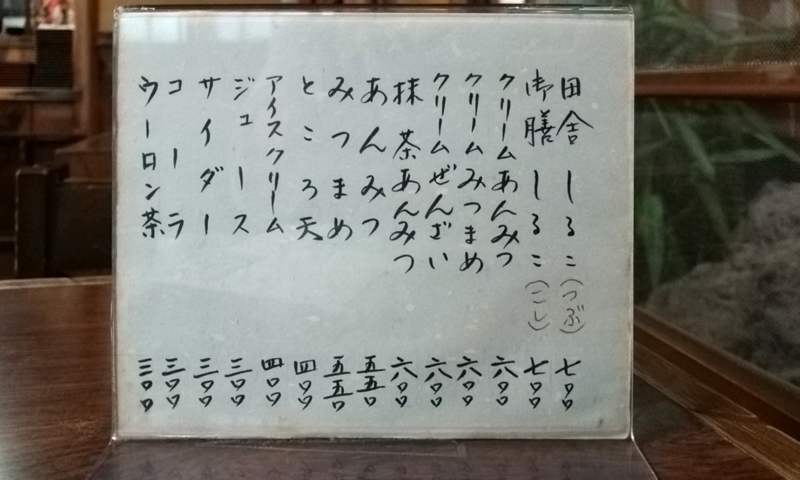 田舎しるこ(つぶ) 七〇〇
御膳しるこ(こし) 七〇〇
クリームあんみつ 六〇〇
クリームみつまめ 六〇〇
クリームぜんざい 六〇〇
抹茶あんみつ 六〇〇
あんみつ 五五〇
みつまめ 五五〇
ところ天 四〇〇
アイスクリーム 四〇〇
ジュース 三〇〇
サイダー 三〇〇
コーラ 三〇〇
ウーロン茶 三〇〇